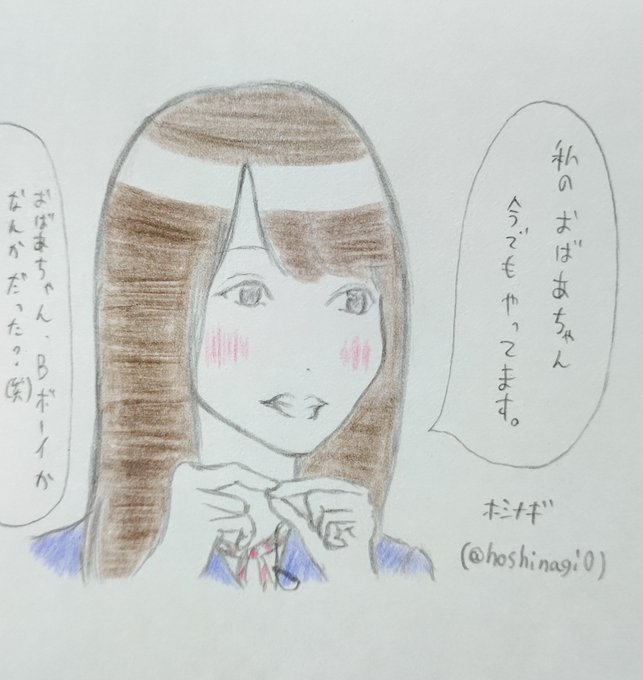 私の おばあちゃん
今でも やってます。
おばあちゃん、Bボーイか
なんかだった?(笑)
ホシナギ
(@hoshinagi0)